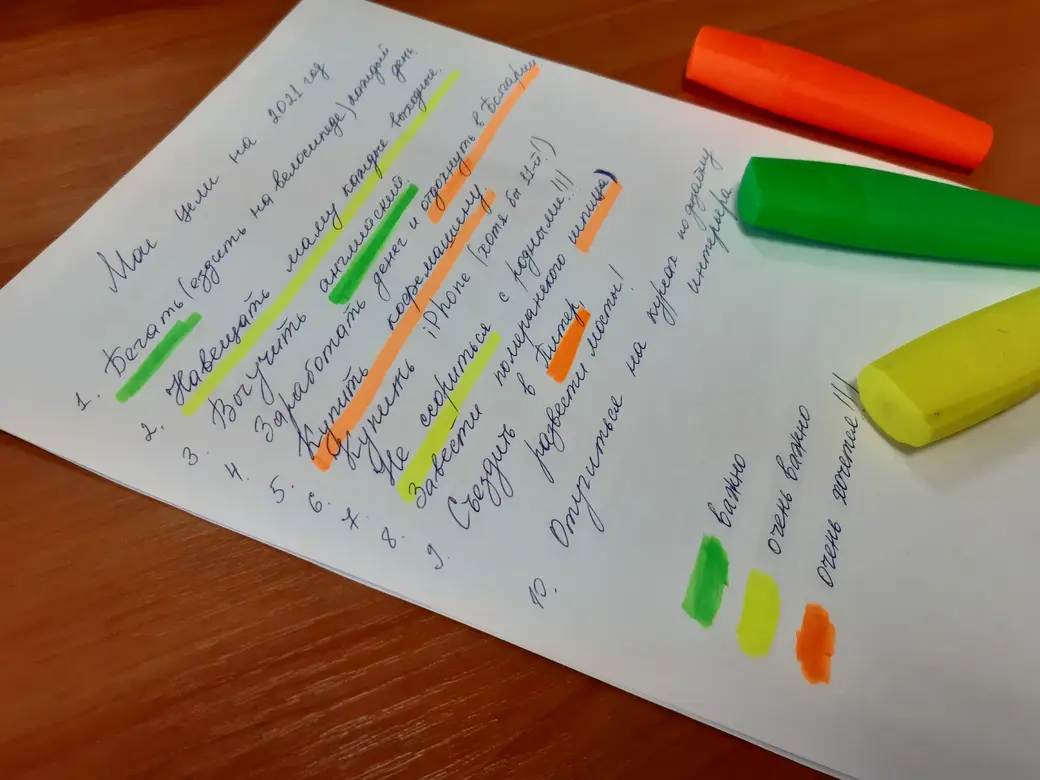 Мои цели на 2021 год
1. Бегать (ездить на велосипеде) каждый день
2. Навещать маму каждые выходные.
3. Выучить английский.
4. Заработать денег и отдохнуть в Болгарии
5. Купить кофемашину.
6. Купить iPhone (хотя бы 11й!)
7. Не ссориться с родными!!!
8. Завести померанского шпица)
9. Съездить в Питер,
развести мосты!
10. Отучиться на курсах по дизайну
интерьера
важно
очень важно
очень хочется!!!